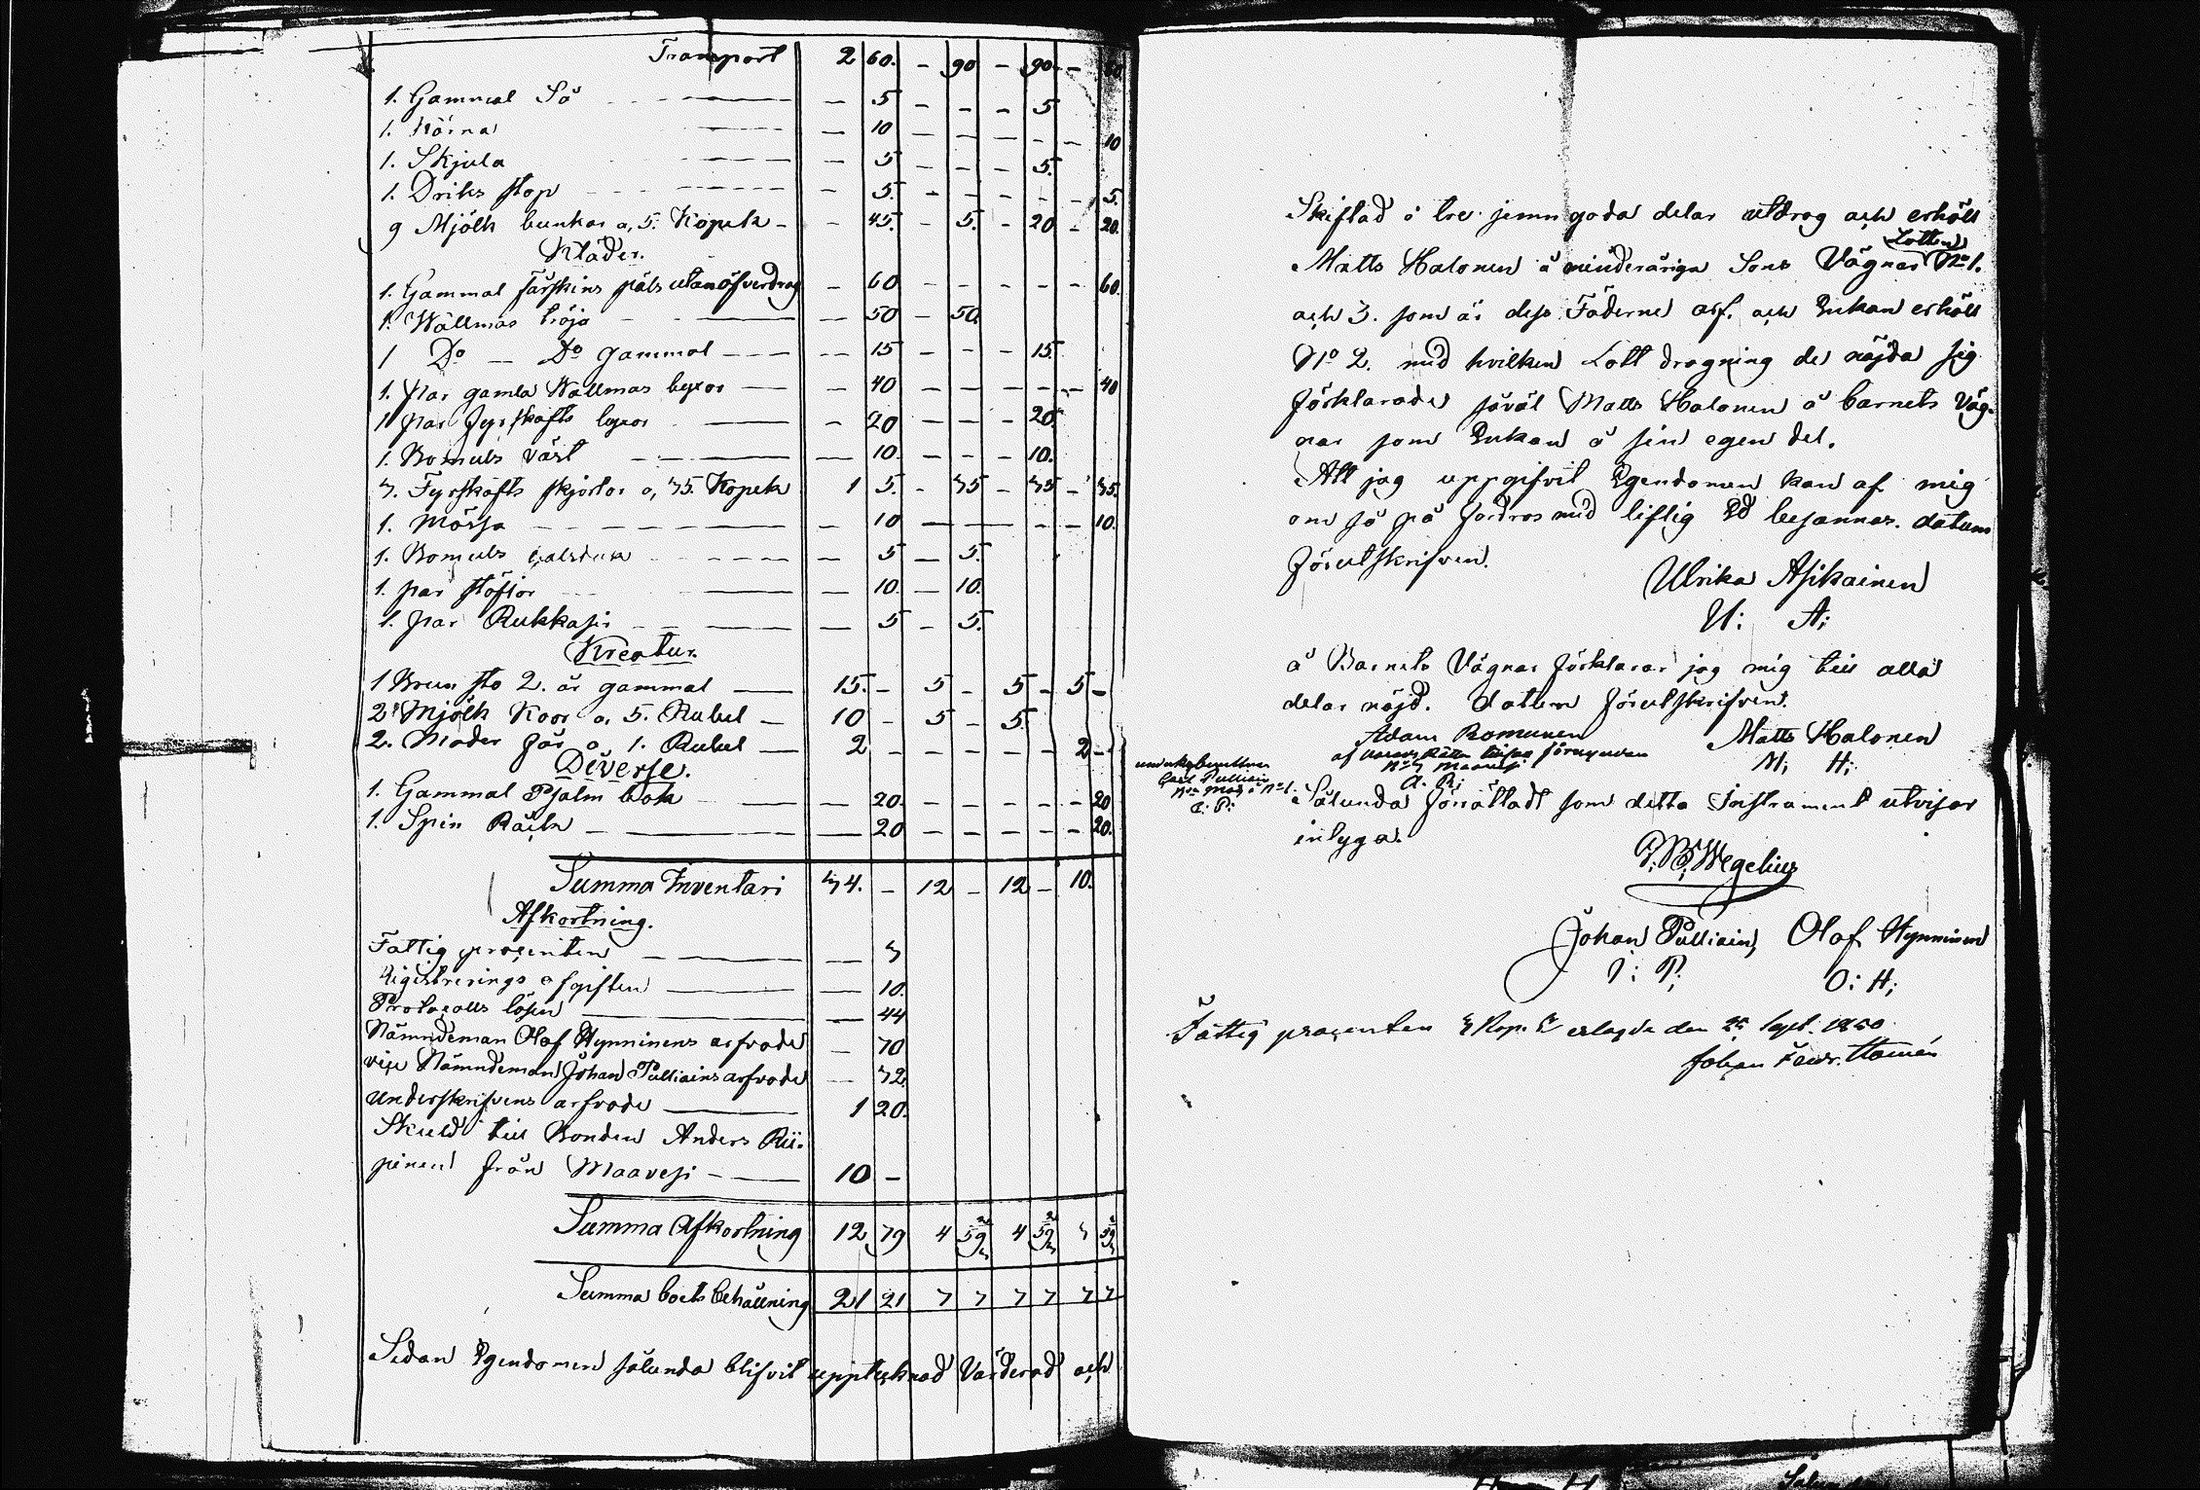 Transport 2 60. - 90 - 90 - - 80
1. Gammal Så - 5 - - - 5
1. Kärna - 10 - - - - - 10
1. Skjula - 5 - - - 5.
1. Driks stop - 5. - - - - - 5.
9 Mjölk bunkar a, 5. Kopek - - 45. - 5. - 20 - 20.
Kläder.
1. Gammal Fårskins päls utan öfverdrag - 60 - - - - - 60.
1. Wallmas tröja - 50 - 50.
1 Do - Do gammal - 15 - - - 15.
1. par gamla Wallmas byxor - 40 - - - - - 40
1 par fyrskafts byxor - 20 - - - 20.
1. Bomuls väst - 10. - - - 10.
7. Fyrskafts skjortor a, 15. Kopek 1 5. - 45 - 45 - 15.
1. Mössa - 10 - - - - 10.
1. Bomuls halsduk - 5 - 5.
1. par stöflor - 10. - 10.
1. par Rukkasir - 5 - 5.
Kreatur.
1 Brun sto 2. år gammal 15. - 5 - 5 - 5 -
2 Mjölk Koor a, 5. Rubel - 10 - 5 - 5.
2. Moder får a 1. Rubel 2 - - - - - 2 -
Diverse.
1. Gammal Psalm bok - 20. - - - - - 20
1. Spin Råck - 20 - - - - - 20.
Summa Inventari 34. - 12 - 12 - 10.
Afkortning.
Fattig procenten - 3
Registrerings afgiften - 10.
Protocolls lösen - 44
Nämndeman Olof Hynninens arfvode - 70
vise Nämndeman Johan Pulliains arfvode - 32
underskrifvens arfvode 1 20.
Skuld till Bonden Anders Rii-
pinen från Maavesi 10 -
Summa Afkortning 12 79 4 59 4 59 3 59
Summa boets behållning 21 21 7 7 7 7 7 7
Sedan Egendomen sålunda blifvit uppteknad Värderad och
Skiftad i tre jemn goda delar utdrog och erhöll
Lotten
Matts Halonen å minderåriga Sons Vägnar No 1.
och 3. som är dess Fäderne arf. och Enkan erhöll
No 2. med hvilken Lott dragning de nöjda sig
förklarade såväl Matts Halonen å barnets Väg-
nar som Enkan å sin egen del.
Att jag uppgifvit Egendomen kan af mig
om så på fordras med liflig Ed besannas. datum
förutskrifven.
Ulrika Asikainen
U: A;
å Barnets Vägnar förklarar jag mig till alla
delar nöjd. datum förutskrifven.
Adam Romunen
Matts Halonen
M; H;
A: R;
Carl Pulliain
C: P:
Sålunda förrättadt som detta Instrument utvisar
intyga.
Wegelius
Johan Pulliain, Olof Hynninen
J: P; O: H;
Fattig procenten 3 Kop. S erlagde den 25 Sept. 1850
Johan